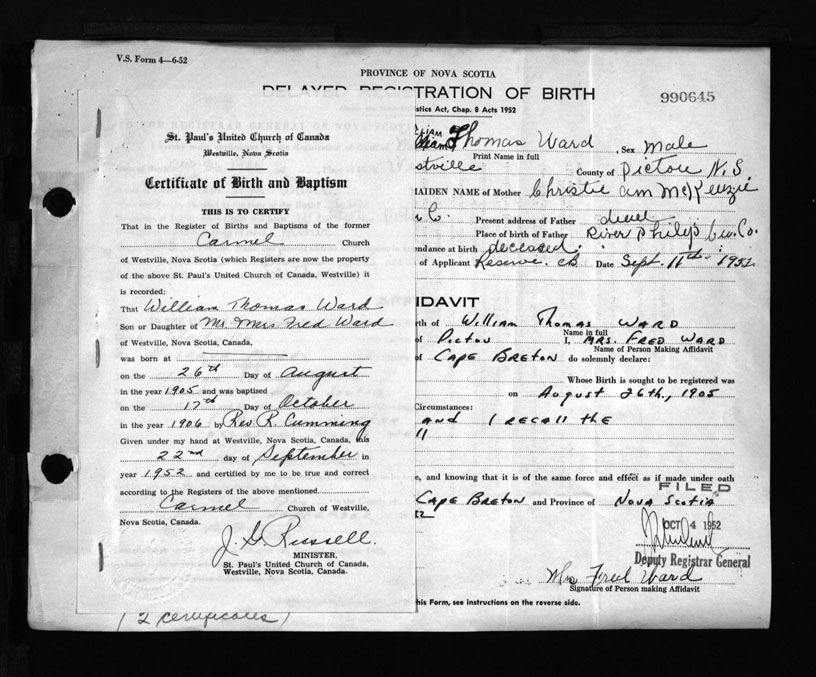 V.S. Form 4—6-52
PROVINCE OF NOVA SCOTIA
DELAYED REGISTRATION OF BIRTH
990645
istics Act, Chap. 8 Acts 1952
St. Paul's United Church of Canada
Westville, Nova Scotia
Certificate of Birth and Baptism
THIS IS TO CERTIFY
That in the Register of Births and Baptisms of the former
Carmel Church
of Westville, Nova Scotia (which Registers are now the property
of the above St. Paul's United Church of Canada, Westville) it
is recorded:
That William Thomas Ward
Son or Daughter of Mr. Mrs Fred Ward
of Westville, Nova Scotia, Canada,
was born at
on the 26th Day of August
in the year 1905 and was baptised
on the 17th Day of October
in the year 1906 by Rev R. Cumming
Given under my hand at Westville, Nova Scotia, Canada, this
22nd day of September in
year 1952 and certified by me to be true and correct
according to the Registers of the above mentioned
Carmel Church of Westville,
Nova Scotia, Canada.
J. S. Russell.
MINISTER,
St. Paul's United Church of Canada,
Westville, Nova Scotia, Canada.
(2 certificates)
LIAM
Thomas Ward, Sex Male
Print Name in full
stville County of Pictou N.S.
MAIDEN NAME of Mother Christie ann McKenzie
C. Present address of Father
Place of birth of Father River Philip Cu. Co.
ndance at birth deceased.
of Applicant Reserve. CB Date Sept. 11th 1952
IDAVIT
rth of William Thomas WARD
Name in full
of Pictou I, MRS. FRED WARD
Name of Person Making Affidavit
of CAPE BRETON do solemnly declare:
Whose Birth is sought to be registered was
on August 26th, 1905
Circumstances:
AND I RECALL THE
11
e, and knowing that it is of the same force and effect as if made under oath
FILED
CAPE BRETON and Province of NOVA SCOTIA
52
OCT 4 1952
Deputy Registrar General
Mrs Fred Ward
Signature of Person making Affidavit
his Form, see instructions on the reverse side.